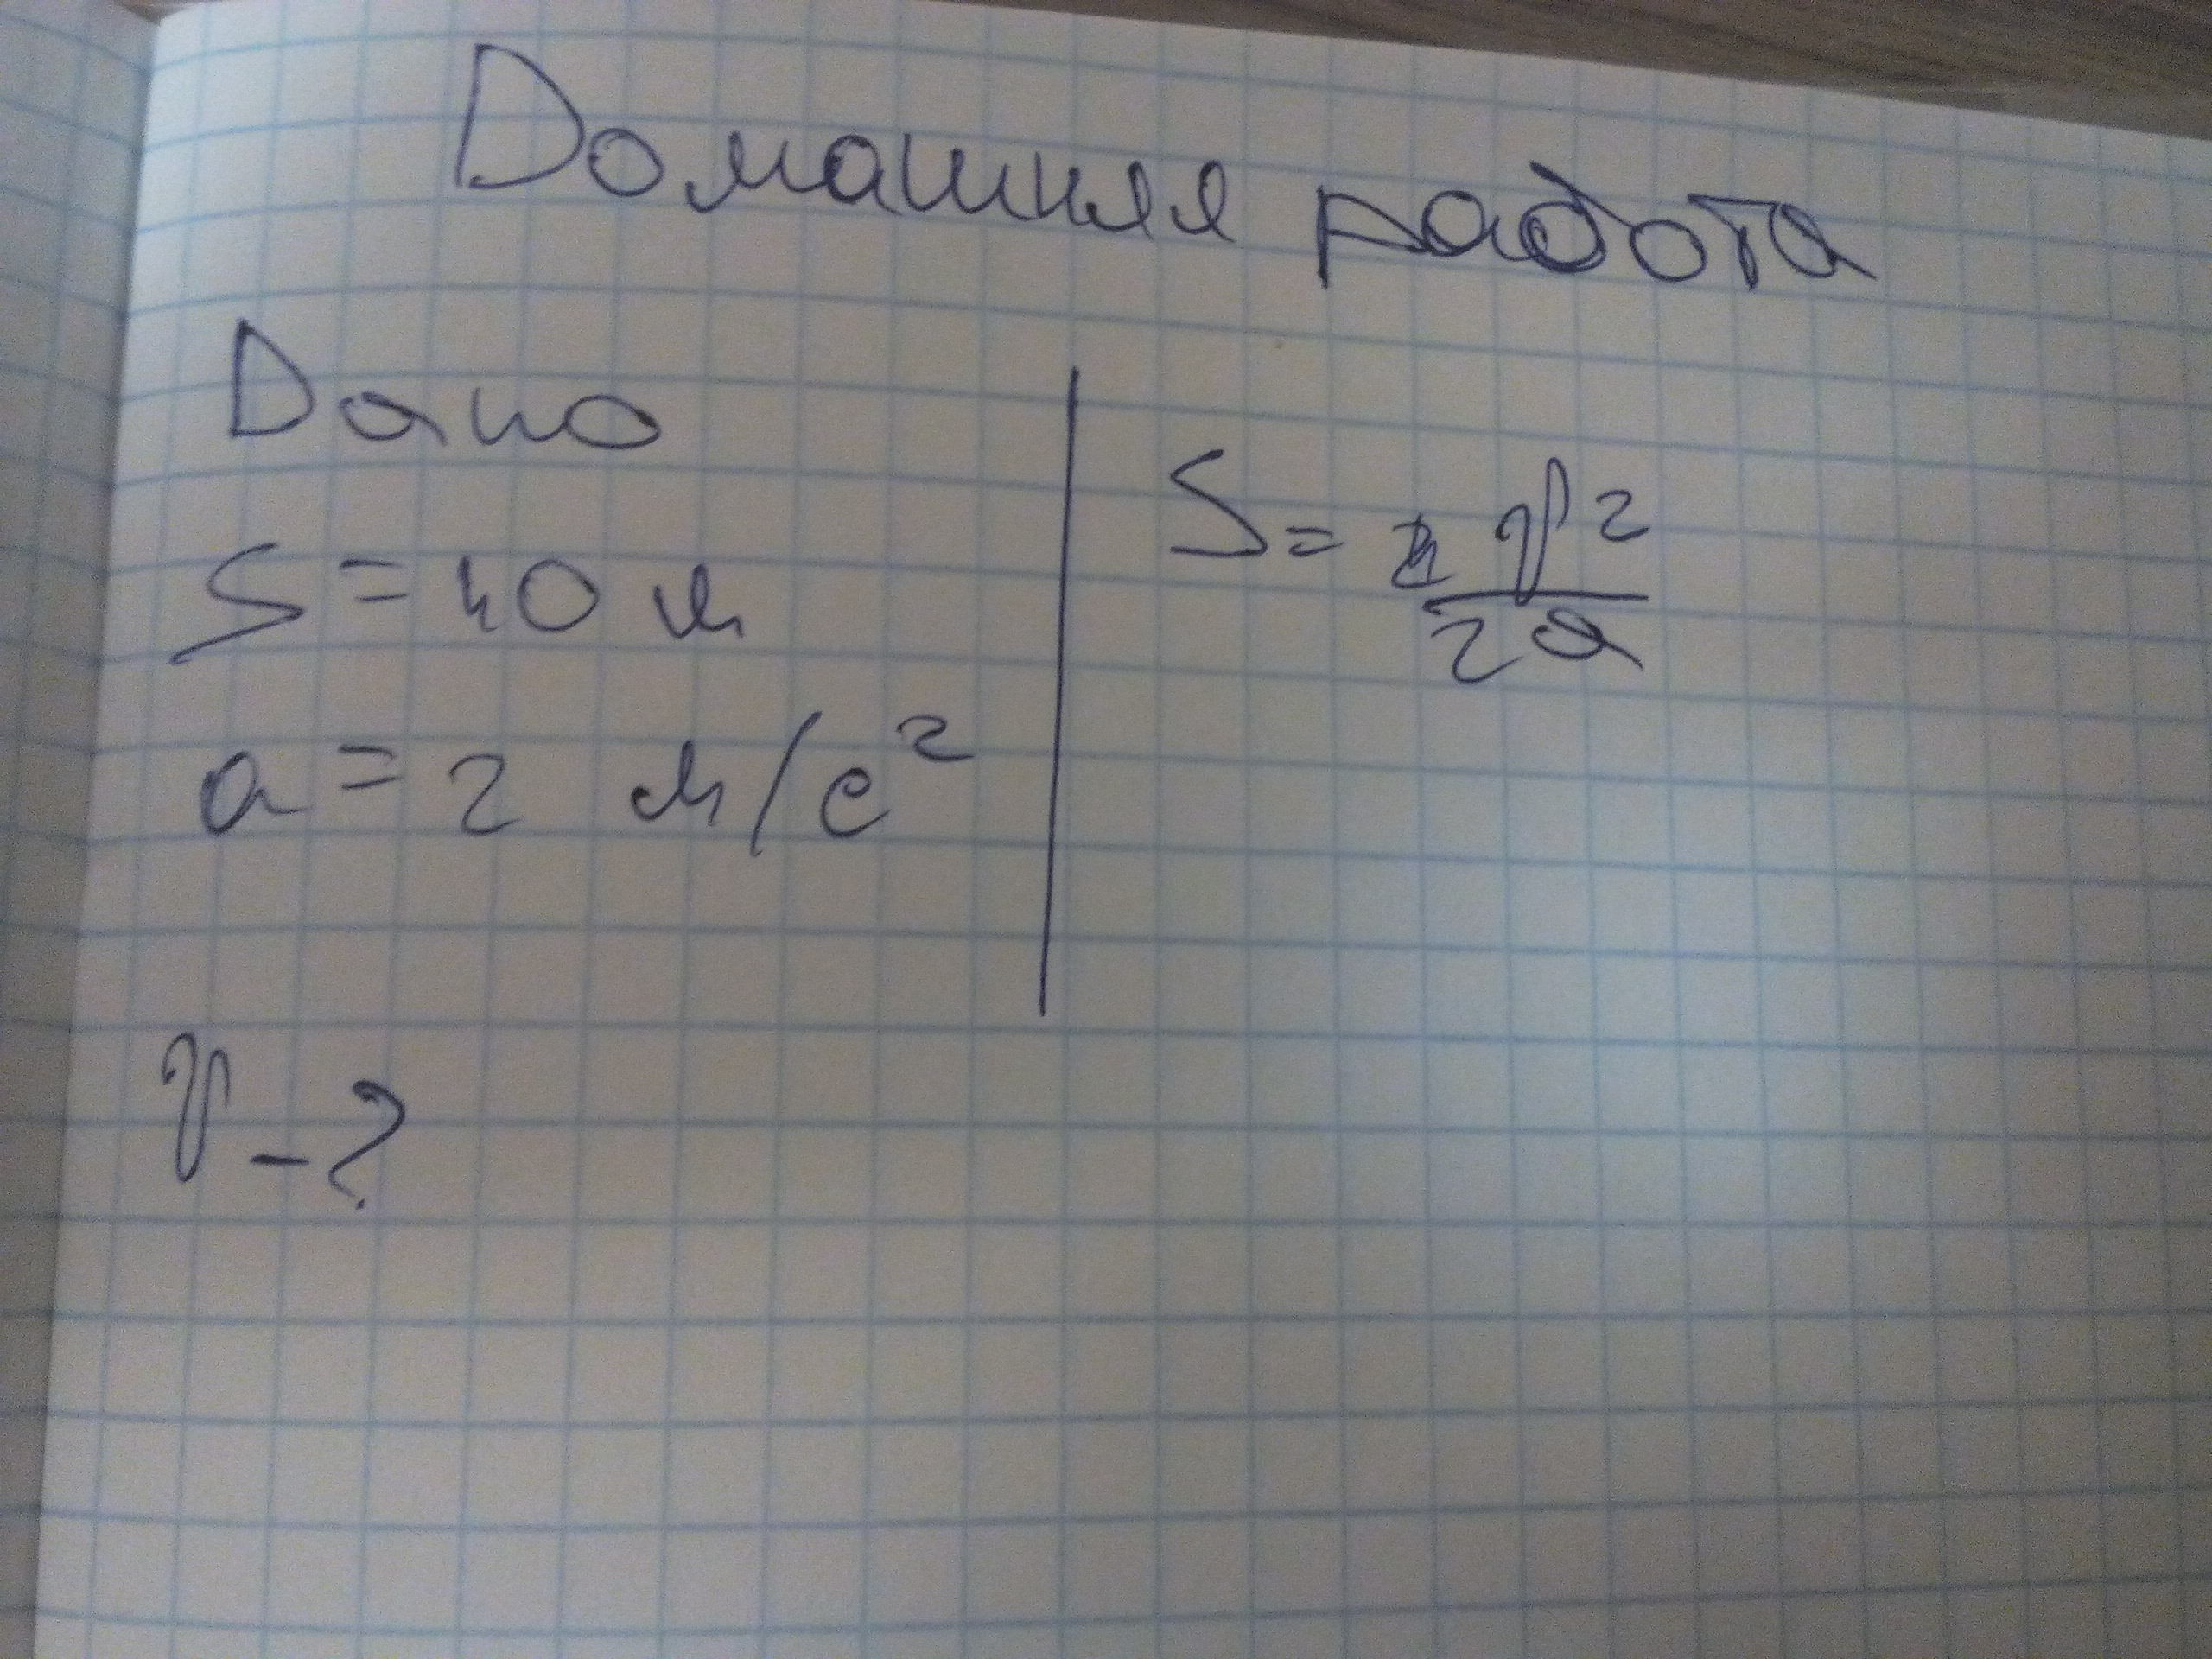 Домашняя работа
Дано
S = 40 м
a = 2 м/с²
V - ?
S = V²
2a